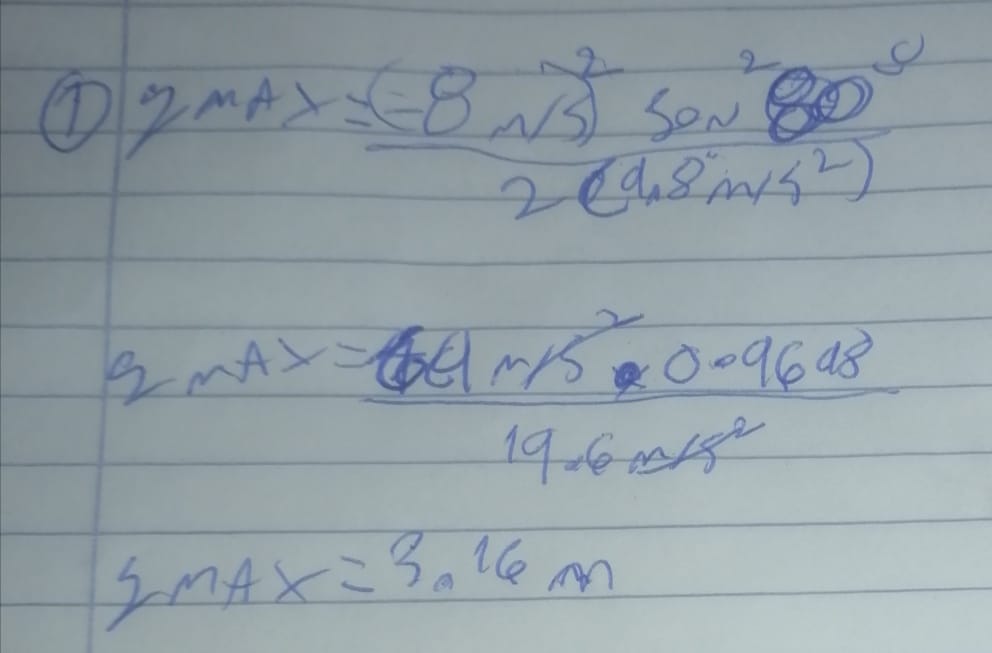 ① YMAX = (-8 m/s)² sen² 80°
2 (9.8 m/s²)
YMAX = 64 m/s² • 0.9698
19.6 m/s²
YMAX = 3.16 m